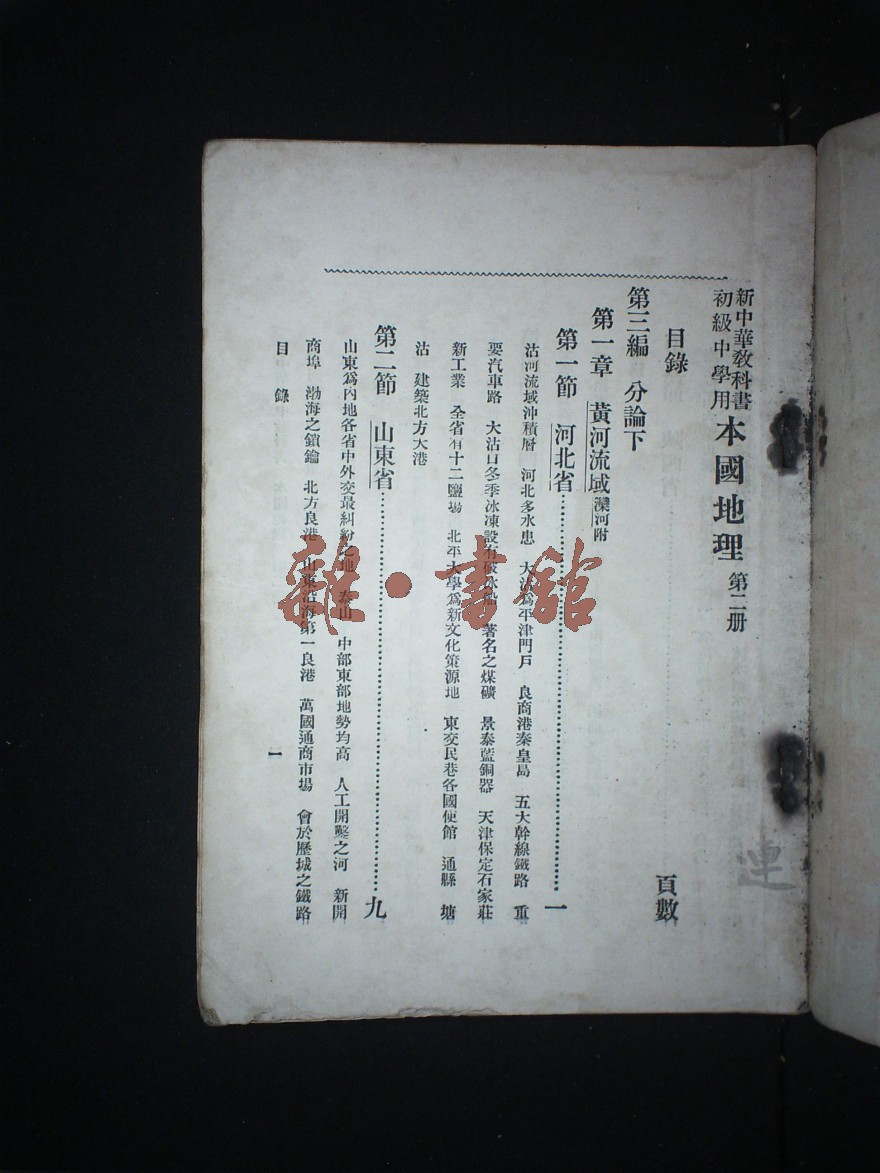 新中華教科書
初級中學用
本國地理 第二册
目錄
頁數
第三編 分論下
第一章 黃河流域灤河附
第一節 河北省……一
沽河流域沖積層 河北多水患 大沽爲平津門戶 良商港秦皇島 五大幹線鐵路 重
要汽車路 大沽口冬季冰凍設有破冰船 著名之煤礦 景泰藍銅器 天津保定石家莊
新工業 全省有十二鹽場 北平大學爲新文化策源地 東交民巷各國使館 通縣 塘
沽 建築北方大港
第二節 山東省……九
山東爲內地各省中外交最糾紛之地 泰山 中部東部地勢均高 人工開鑿之河 新開
商埠 渤海之鎖鑰 北方良港 山東沿海第一良港 萬國通商市場 會於歷城之鐵路
目錄
一
雜·書館
連